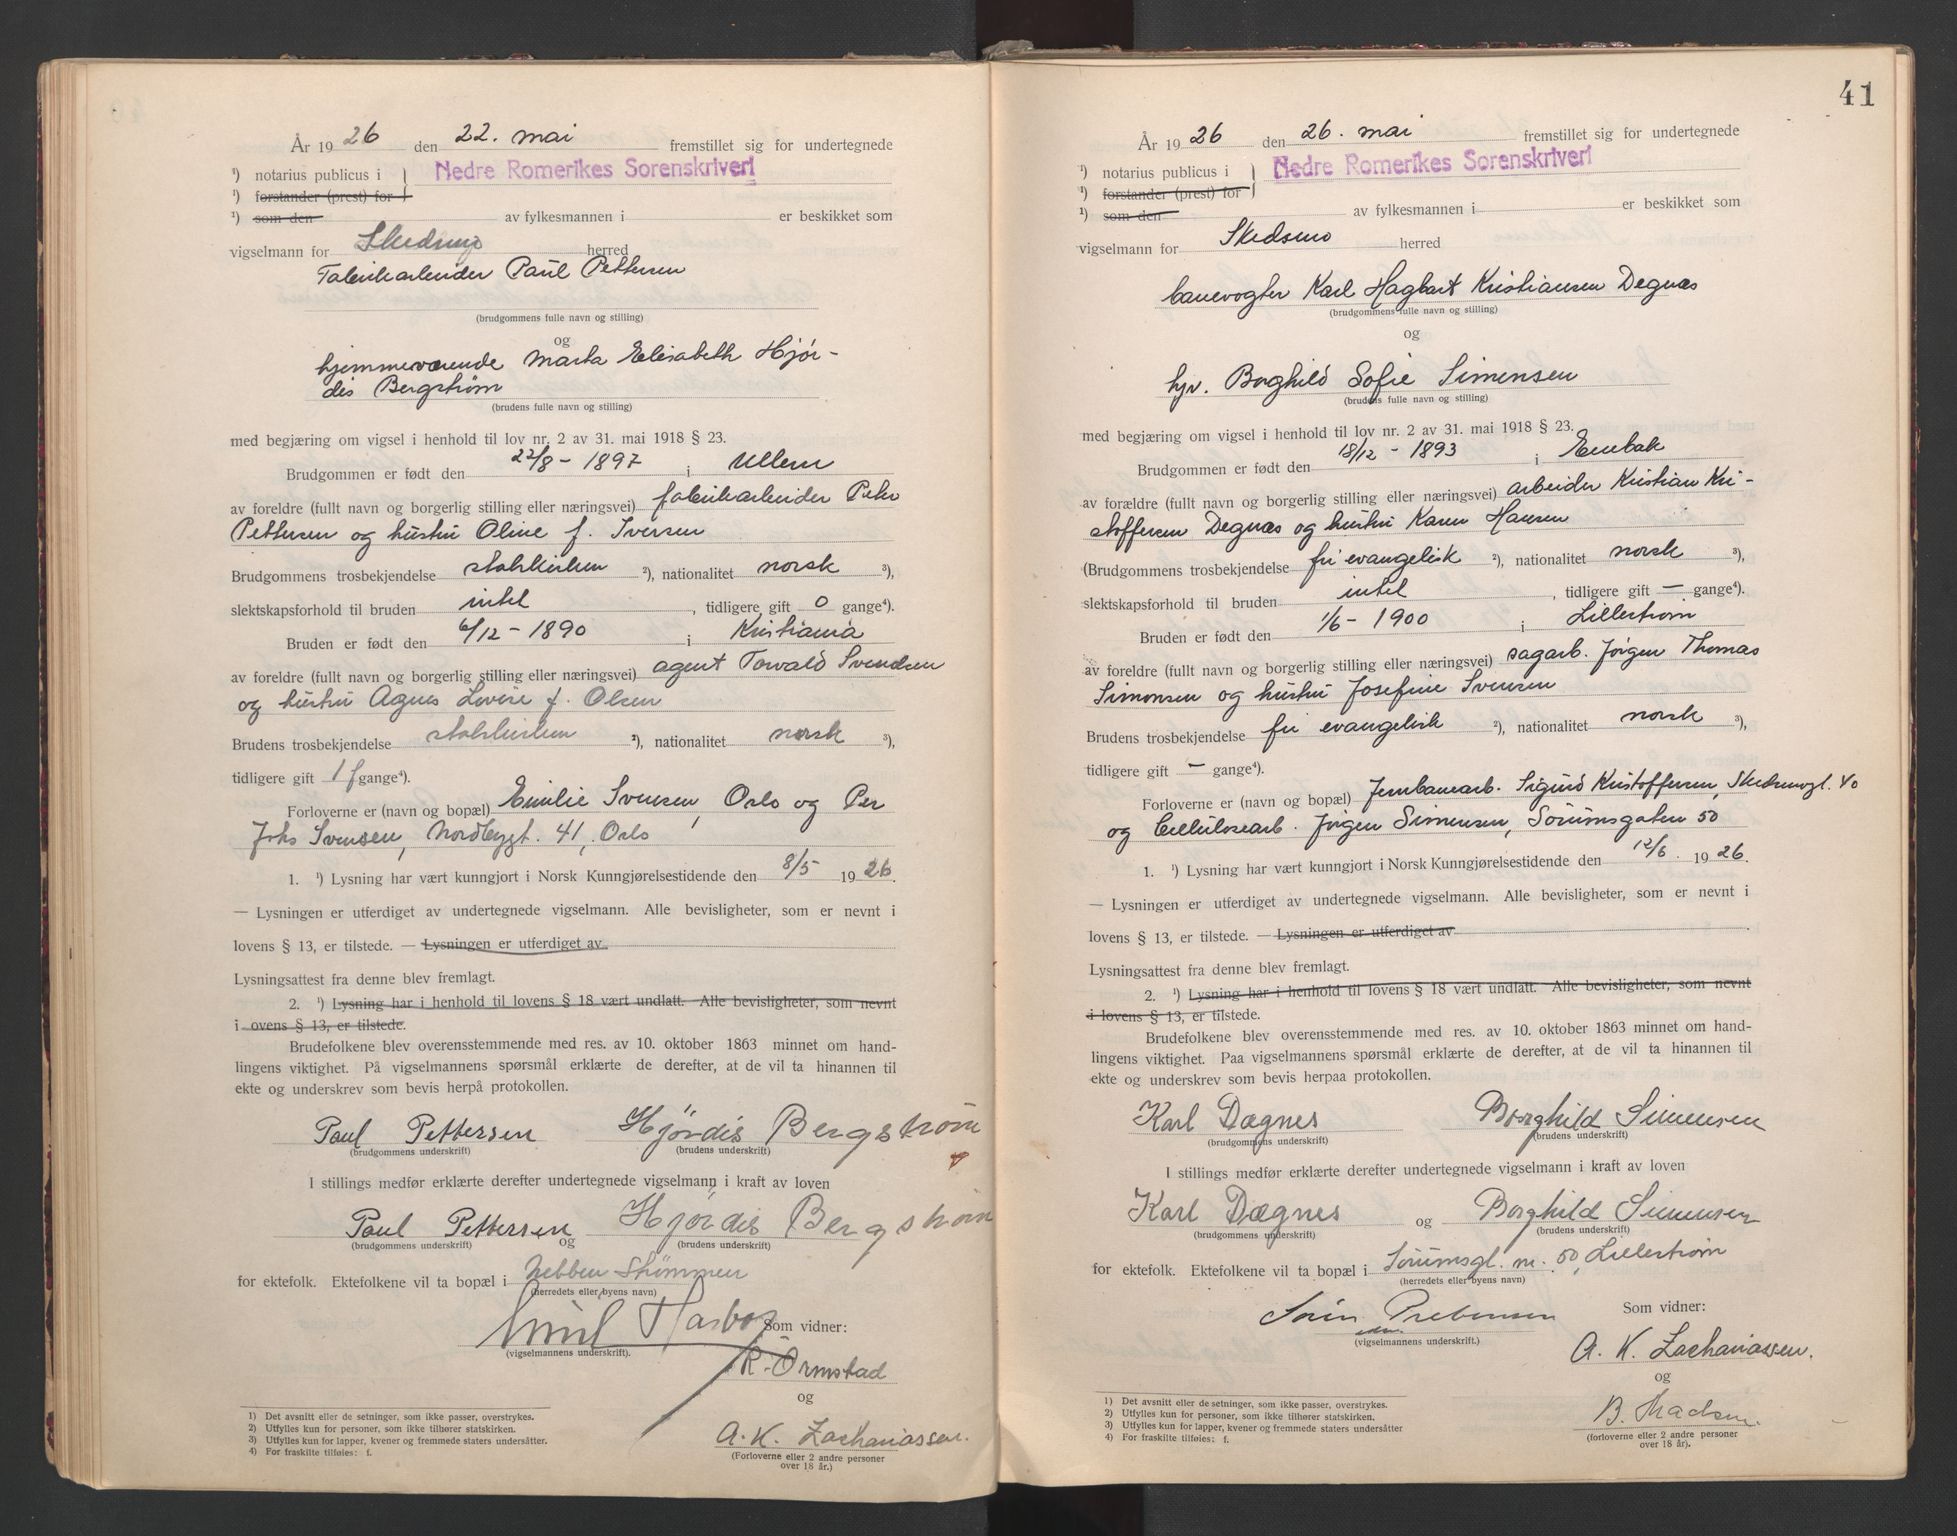 År 1926 den 22. mai fremstillet sig for undertegnede
¹) notarius publicus i } Nedre Romerikes Sorenskriveri
¹) forstander (prest) for
¹) som den av fylkesmannen i er beskikket som
vigselmann for Skedsmo herred
Fabrikarbeider Paul Pettersen
(brudgommens fulle navn og stilling)
og
hjemmeværende Marta Elisabeth Hjør-
dis Bergstrøm
(brudens fulle navn og stilling)
med begjæring om vigsel i henhold til lov nr. 2 av 31. mai 1918 § 23.
Brudgommen er født den 22/8 - 1897 i Ullern
av foreldre (fullt navn og borgerlig stilling eller næringsvei) fabrikarbeider Peter
Pettersen og hustru Oline f. Iversen
Brudgommens trosbekjendelse statskirken ²), nationalitet norsk ³),
slektskapsforhold til bruden intet, tidligere gift 0 gange⁴).
Bruden er født den 6/12 - 1890 i Kristiania
av foreldre (fullt navn og borgerlig stilling eller næringsvei) agent Torvald Svendsen
og hustru Agnes Lovise f. Olsen
Brudens trosbekjendelse statskirken ²), nationalitet norsk ³),
tidligere gift 1 f gange⁴).
Forloverne er (navn og bopæl) Emilie Svensen, Oslo og Per
Johs Svensen, Nordbygt. 41, Oslo
1. ¹) Lysning har vært kunngjort i Norsk Kunngjørelsestidende den 8/5 1926.
— Lysningen er utferdiget av undertegnede vigselmann. Alle bevisligheter, som er nevnt i
lovens § 13, er tilstede. — Lysningen er utferdiget av
Lysningsattest fra denne blev fremlagt.
2. ¹) Lysning har i henhold til lovens § 18 vært undlatt. Alle bevisligheter, som nevnt
i ovens § 13, er tilstede.
Brudefolkene blev overensstemmende med res. av 10. oktober 1863 minnet om hand-
lingens viktighet. På vigselmannens spørsmål erklærte de derefter, at de vil ta hinannen til
ekte og underskrev som bevis herpå protokollen.
Paul Pettersen Hjördis Bergström
(brudgommens underskrift) (brudens underskrift)
I stillings medfør erklærte derefter undertegnede vigselmann i kraft av loven
Paul Pettersen og Hjördis Bergström
(brudgommens underskrift) (brudens underskrift)
for ektefolk. Ektefolkene vil ta bopæl i Nebben Strømmen
(herredets eller byens navn)
Emil
(vigselmannens underskrift).
Som vidner:
R. Ormstad
og
A. K. Zachariassen.
(Forloverne eller 2 andre personer
over 18 år.)
1) Det avsnitt eller de setninger, som ikke passer, overstrykes.
2) Utfylles kun for personer, som ikke tilhører statskirken.
3) Utfylles kun for lapper, kvener og fremmede staters undersåtter.
4) For fraskilte tilføies: f.
41
År 1926 den 26. mai fremstillet sig for undertegnede
¹) notarius publicus i } Nedre Romerikes Sorenskriveri
¹) forstander (prest) for
¹) som den av fylkesmannen i er beskikket som
vigselmann for Skedsmo herred
banevogter Karl Hagbart Kristiansen Degnæs
(brudgommens fulle navn og stilling)
og
hjv. Borghild Sofie Simensen
(brudens fulle navn og stilling)
med begjæring om vigsel i henhold til lov nr. 2 av 31. mai 1918 § 23.
Brudgommen er født den 18/12 - 1893 i Enebak
av forældre (fullt navn og borgerlig stilling eller næringsvei) arbeider Kristian Kri-
stoffersen Degnæs og hustru Karen Hansen
(Brudgommens trosbekjendelse fri evangelisk ²), nationalitet norsk ³),
slektskapsforhold til bruden intet, tidligere gift — gange⁴).
Bruden er født den 1/6 - 1900 i Lillestrøm
av foreldre (fullt navn og borgerlig stilling eller næringsvei) sagarb. Jørgen Thomas
Simonsen og hustru Josefine Svensen
Brudens trosbekjendelse fri evangelisk ²), nationalitet norsk ³),
tidligere gift — gange⁴).
Forloverne er (navn og bopæl) Jernbanearb. Sigurd Kristoffersen, Skedsmogt. 40
og Cellulosearb. Jørgen Simensen, Sørumsgaten 50
1. ¹) Lysning har vært kunngjort i Norsk Kunngjørelsestidende den 12/6. 1926.
— Lysningen er utferdiget av undertegnede vigselmann. Alle bevisligheter, som er nevnt i
lovens § 13, er tilstede. — Lysningen er utferdiget av
Lysningsattest fra denne blev fremlagt.
2. ¹) Lysning har i henhold til lovens § 18 vært undlatt. Alle bevisligheter, som nevnt
i lovens § 13, er tilstede.
Brudefolkene blev overensstemmende med res. av 10. oktober 1863 minnet om hand-
lingens viktighet. Paa vigselmannens spørsmål erklærte de derefter, at de vil ta hinannen til
ekte og underskrev som bevis herpaa protokollen.
Karl Dægnes Borghild Simensen
(brudgommens underskrift) (brudens underskrift)
I stillings medfør erklærte derefter undertegnede vigselmann i kraft av loven
Karl Dægnes og Borghild Simensen
(brudgommens underskrift) (brudens underskrift)
for ektefolk. Ektefolkene vil ta bopæl i Sørumsgt. nr. 50, Lillestrøm
(herredets eller byens navn)
Sørin Prebensen
(vigselmannens underskrift.)
Som vidner:
A. K. Zachariassen.
og
B. Madsen.
(forloverne eller 2 andre personer
over 18 år).
1) Det avsnitt eller de setninger, som ikke passer, overstrykes.
2) Utfylles kun for personer, som ikke tilhører statskirken.
3) Utfylles kun for lapper, kvener og fremmede staters undersåtter
4) For fraskilte tilføies: f.